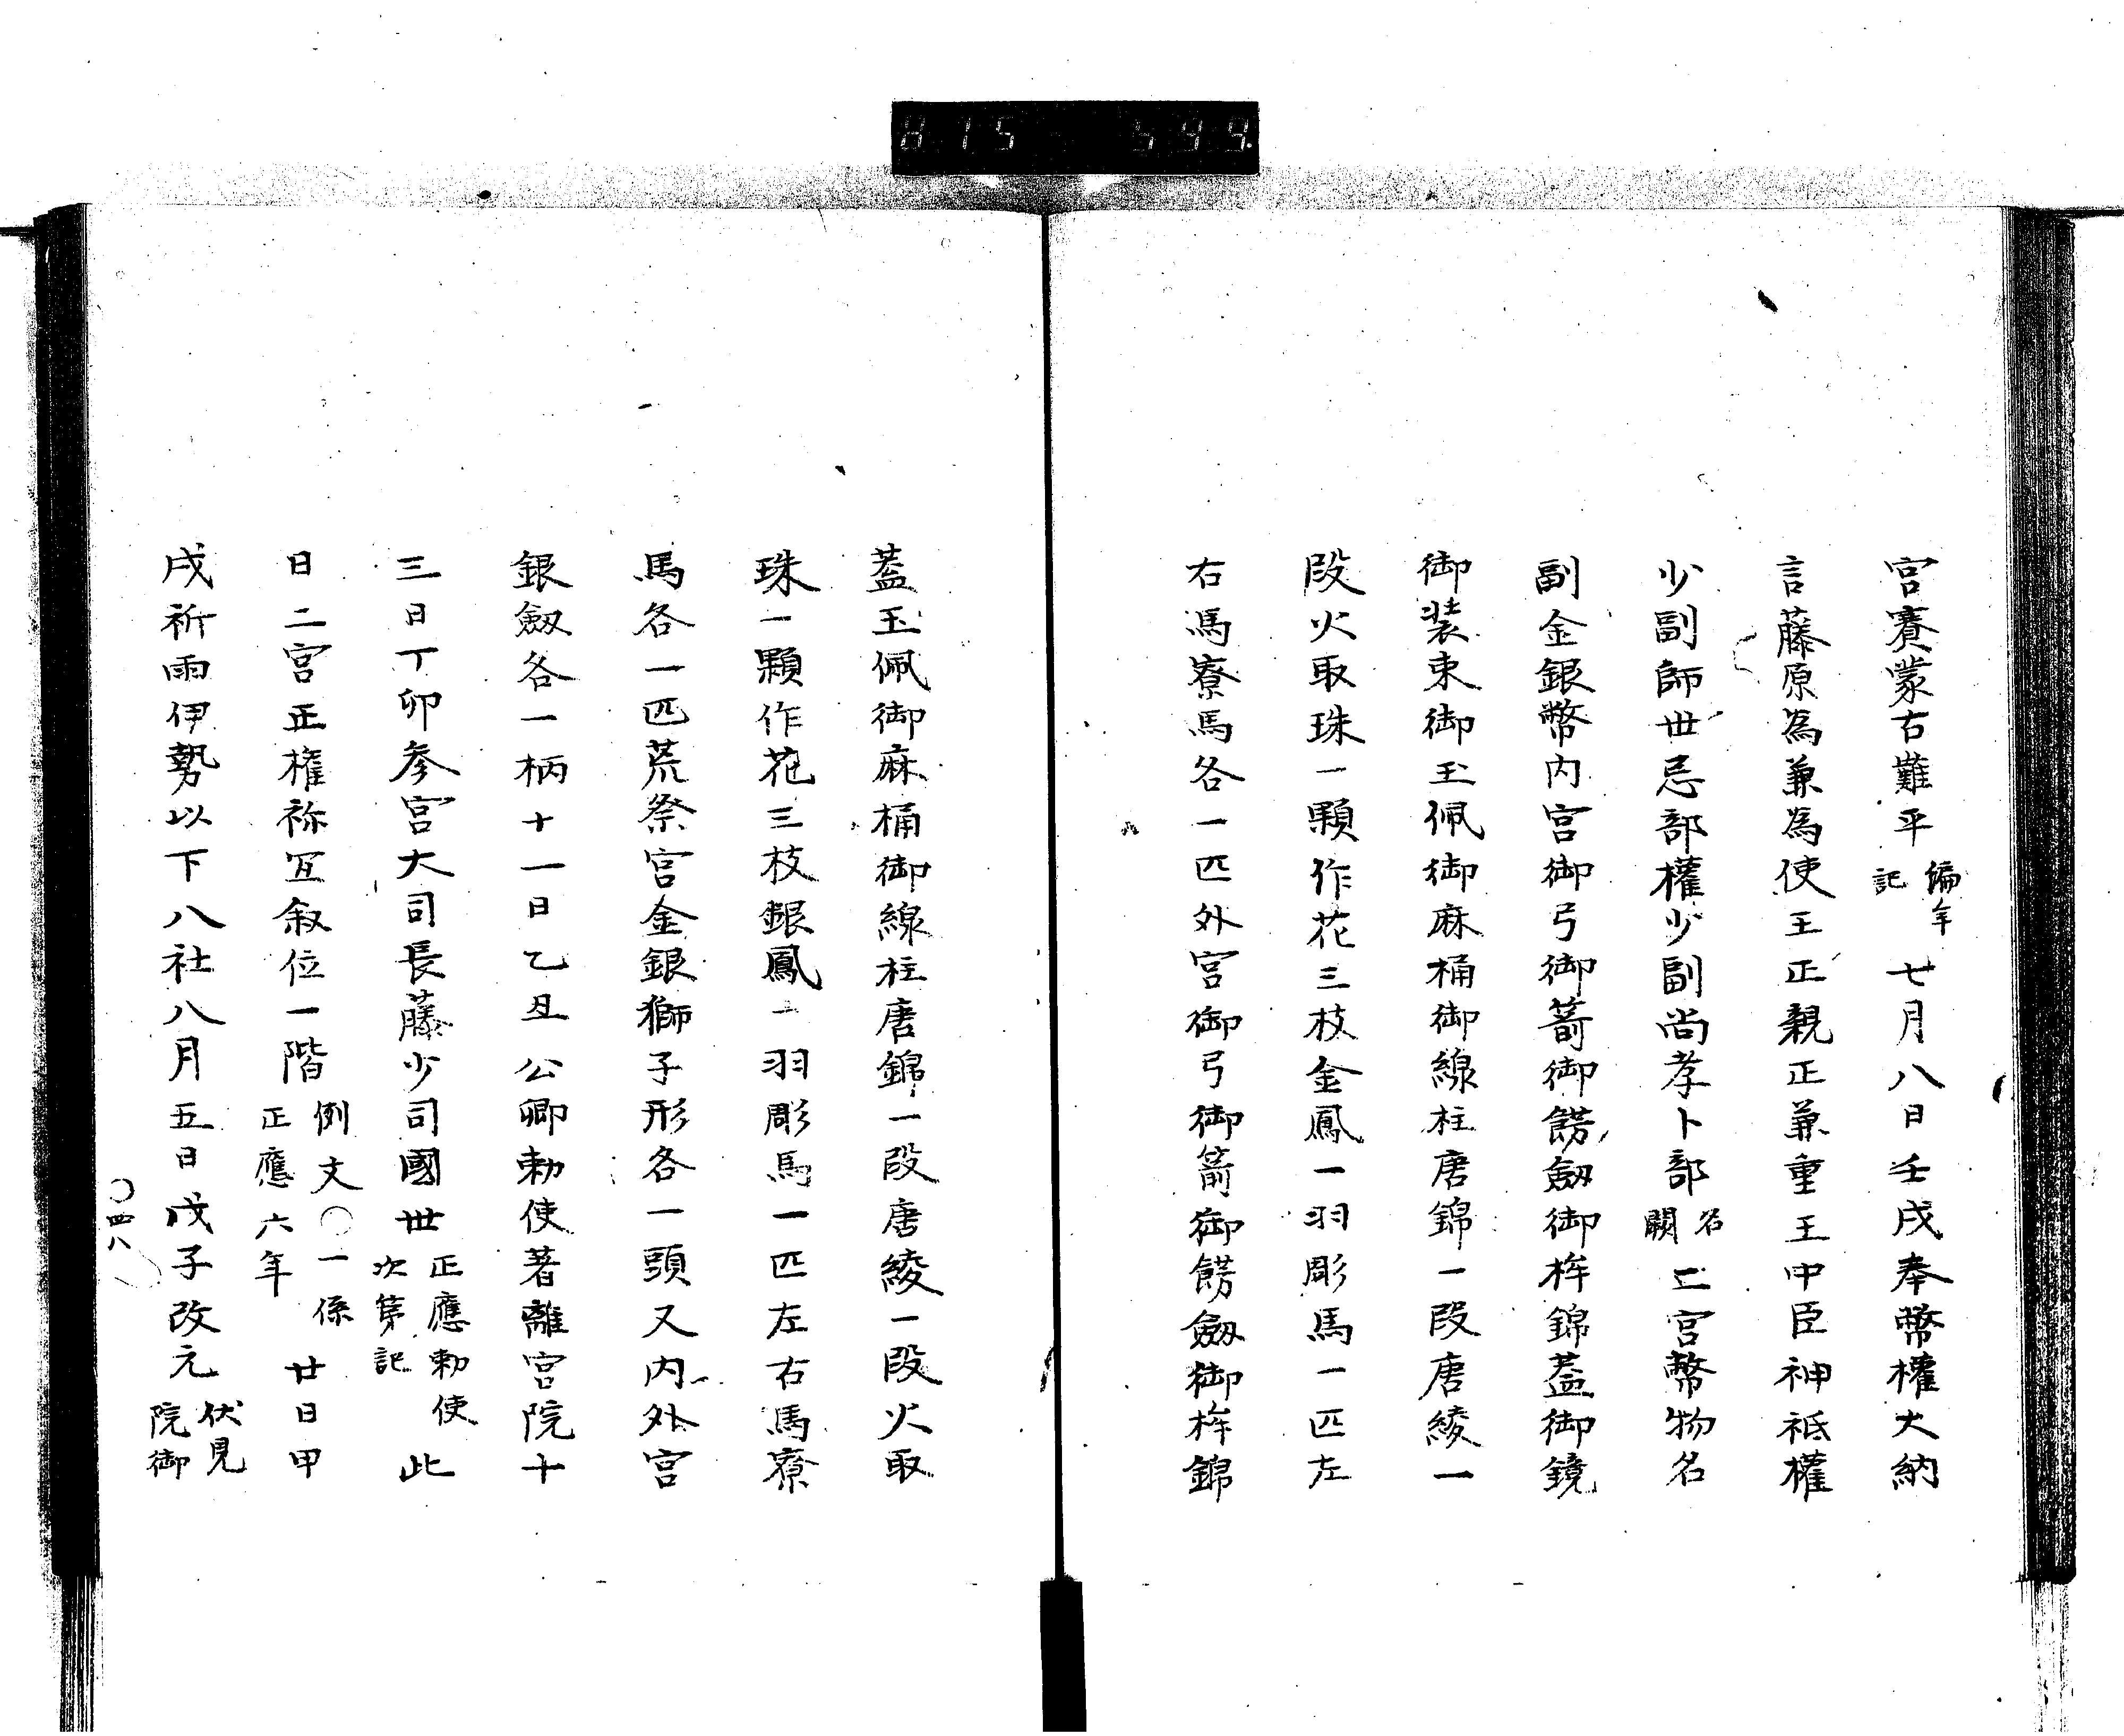 宮賽蒙古難平編年記七月八日壬戌奉幣權大納
言藤原為兼為使王正親正兼重王中臣神祗權
少副師世忌部權少副尚孝卜部名闕二宮幣物名
副金銀幣内宮御弓御箭御餝劔御桙錦蓋御鏡
御装束御玉佩御麻桶御線柱唐錦一段唐綾一
段火取珠一顆作花三枝金鳳一羽彫馬一匹左
右馬寮馬各一匹外宮御弓御箭御餝劔御桙錦
蓋玉佩御麻桶御線柱唐錦一段唐綾一段火取
珠一顆作花三枝銀鳳一羽彫馬一匹左右馬寮
馬各一匹荒祭宮金銀獅子形各一頭又内外宮
銀劔各一柄十一日乙丑公卿勅使著離宮院十
三日丁卯参宮大司長藤少司國世正應勅使次第記此
日二宮正權祢冝叙位一階例文〇一係正應六年廿日甲
戌祈雨伊勢以下八社八月五日戊子改元伏見院御
〇四八
815 599.